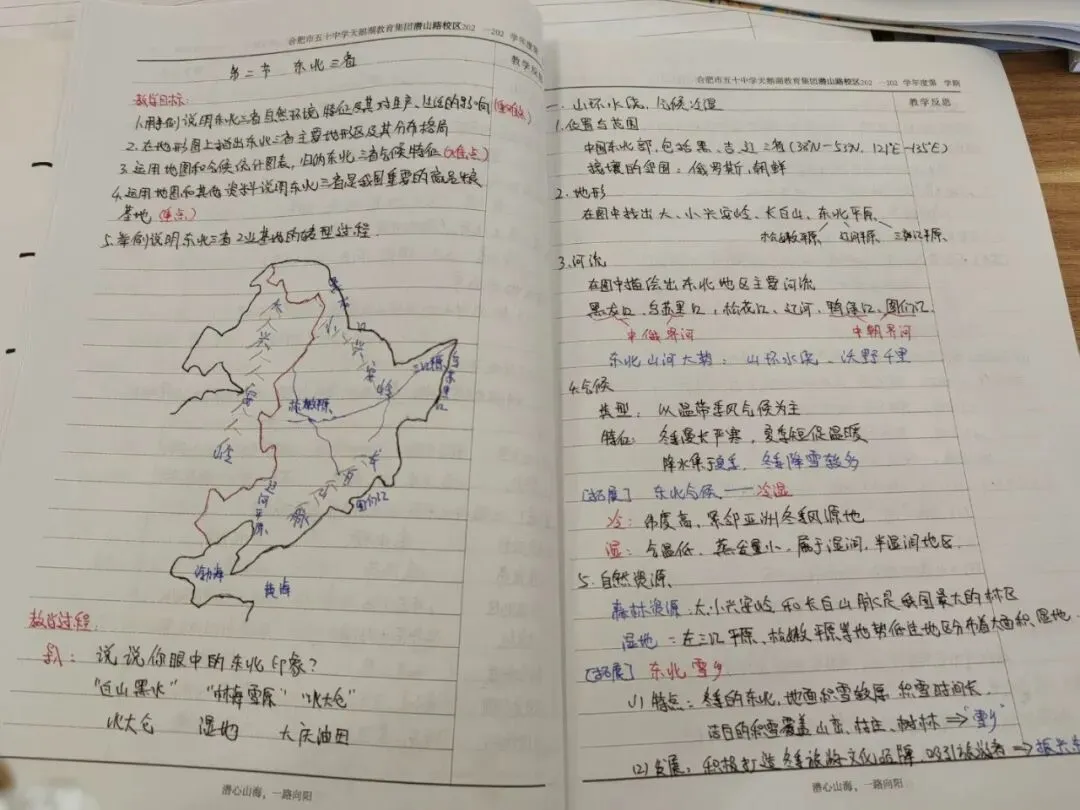 合肥市五十中学天鹅湖教育集团潜山路校区202 —202 学年度第
教学反思
第二节 东北三省
教学目标:
1.用事例说明东北三省自然环境特征及其对生产、生活的影响(重难点)
2.在地形图上指出东北三省主要地形区及其分布格局
3.运用地图和气候统计图表,归纳东北三省气候特征(难点)
4.运用地图和其他资料说明东北三省是我国重要的商品粮
基地(重点)
5.举例说明东北三省工业基地的转型过程
大兴安岭
小兴安岭
三江平原
乌苏里江
松嫩平原
长白山脉
图们江
辽河平原
渤海
黄海
教学过程:
导入:说说你眼中的东北印象?
"白山黑水" "林海雪原" "北大仓"
北大仓 湿地 大庆油田
潜心山海,一路向阳
合肥市五十中学天鹅湖教育集团潜山路校区202 —202 学年度第 学期
教学反思
一.山环水绕,气候冷湿
1.位置与范围
中国东北部,包括黑、吉、辽三省(38°N-53°N,121°E-135°E)
接壤的邻国:俄罗斯、朝鲜
2.地形
在图中找出大、小兴安岭、长白山、东北平原
松嫩平原 辽河平原 三江平原
3.河流
在图中描绘出东北地区主要河流
黑龙江、乌苏里江,松花江、辽河,鸭绿江、图们江
中俄界河 中朝界河
东北山河大势:山环水绕、沃野千里
4.气候
类型:以温带季风气候为主
特征:冬季漫长严寒,夏季短促温暖
降水集于夏季,冬季降雪较多
[拓展] 东北气候——冷湿
冷:纬度高、紧邻亚洲冬季风源地
湿:气温低、蒸发量小,属于湿润、半湿润地区
5.自然资源
森林资源:大、小兴安岭和长白山脉是我国最大的林区
湿地:在三江平原、松嫩平原等地势低洼地区分布着大面积湿地
[拓展] 东北雪乡
(1)特点:冬季的东北,地面积雪较厚 积雪时间长
洁白的积雪覆盖山峦、村庄、树林⇒"雪乡"
(2)发展:积极打造冬季旅游文化品牌,吸引旅游者⇒振兴
潜心山海,一路向阳